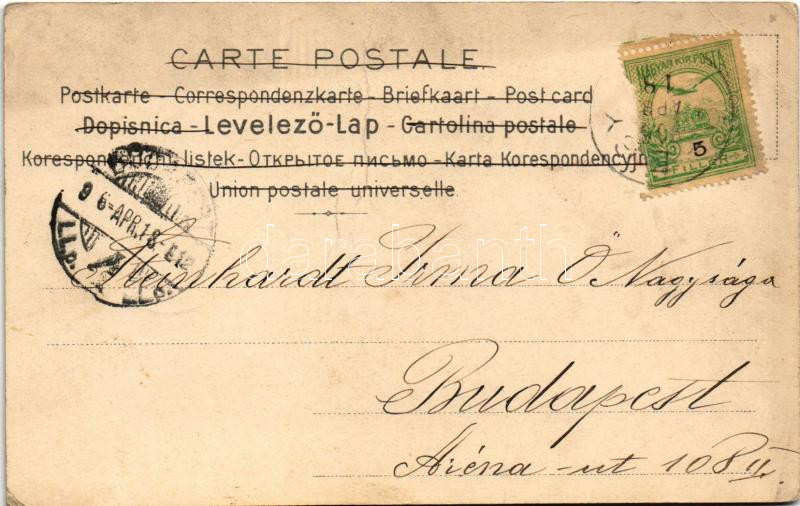 CARTE POSTALE.
Postkarte - Correspondenzkarte - Briefkaart - Post card
Dopisnica - Levelező-Lap - Cartolina postale
Korespondenční listek - Открытое письмо - Karta Korespondencyjna
Union postale universelle.
MAGYAR KIR. POSTA
5
FILLÉR
9 6-APR.18-E12
Steinhardt Irma Ő Nagysága
Budapest
Aréna-ut 108 II.
darabanth